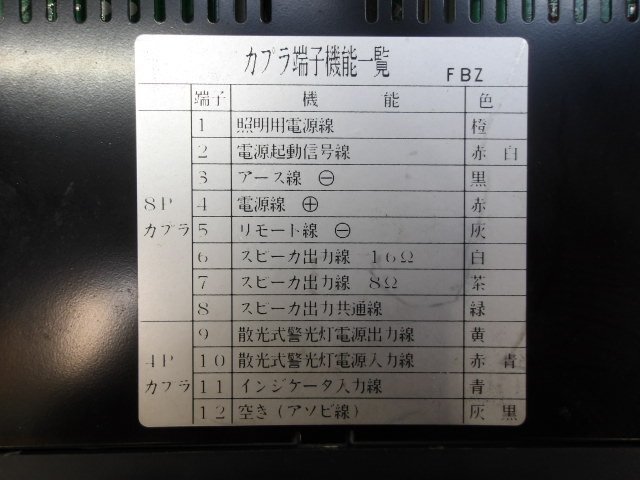 カプラ端子機能一覧 FBZ
端子 機能 色
1 照明用電源線 橙
2 電源起動信号線 赤 白
3 アース線 ⊖ 黒
8P 4 電源線 ⊕ 赤
カプラ 5 リモート線 ⊖ 灰
6 スピーカ出力線 16Ω 白
7 スピーカ出力線 8Ω 茶
8 スピーカ出力共通線 緑
9 散光式警光灯電源出力線 黄
4P 10 散光式警光灯電源入力線 赤 青
カプラ 11 インジケータ入力線 青
12 空き(アソビ線) 灰 黒